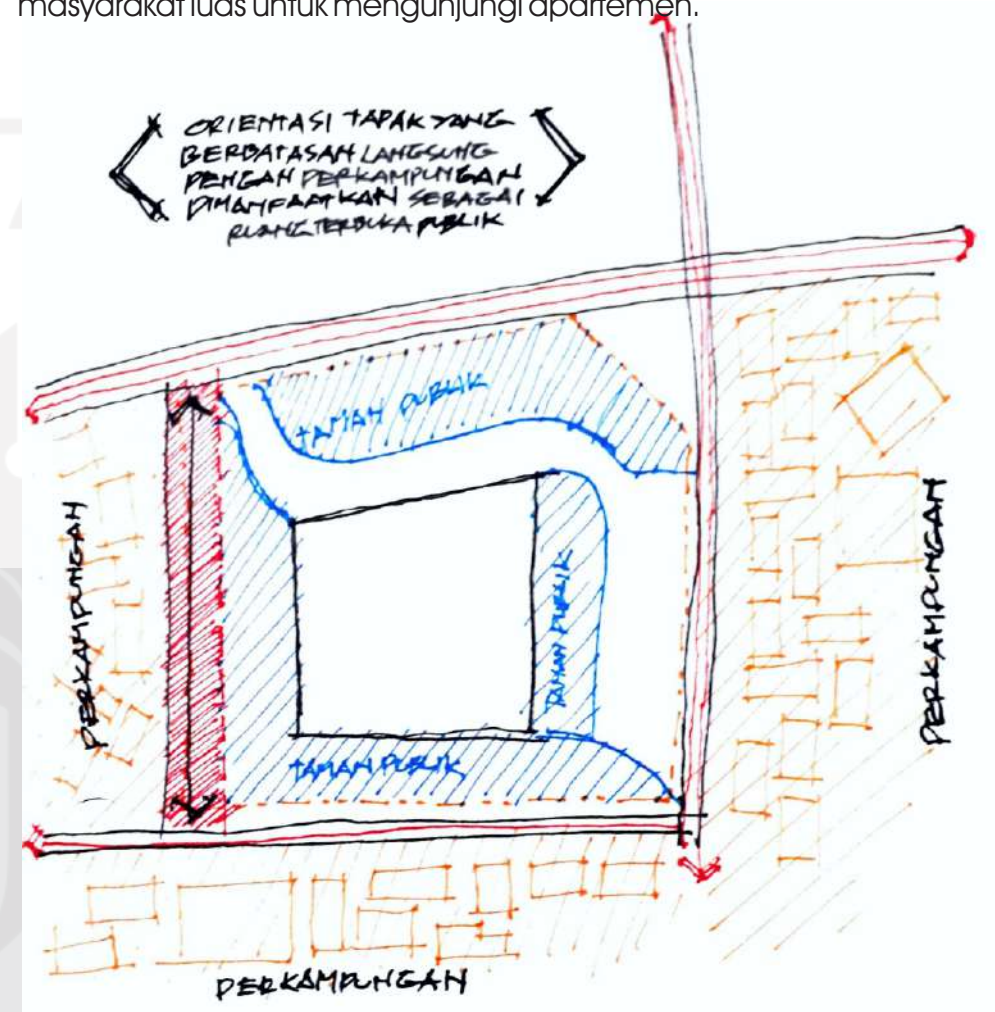 masyarakat luas untuk mengunjungi apartemen.
ORIENTASI TAPAK YANG
BERBATASAN LANGSUNG
DENGAN PERKAMPUNGAN
DIMANFAATKAN SEBAGAI
RUANG TERBUKA PUBLIK
TAMAN PUBLIK
PERKAMPUNGAN
TAMAN PUBLIK
PERKAMPUNGAN
TAMAN PUBLIK
PERKAMPUNGAN